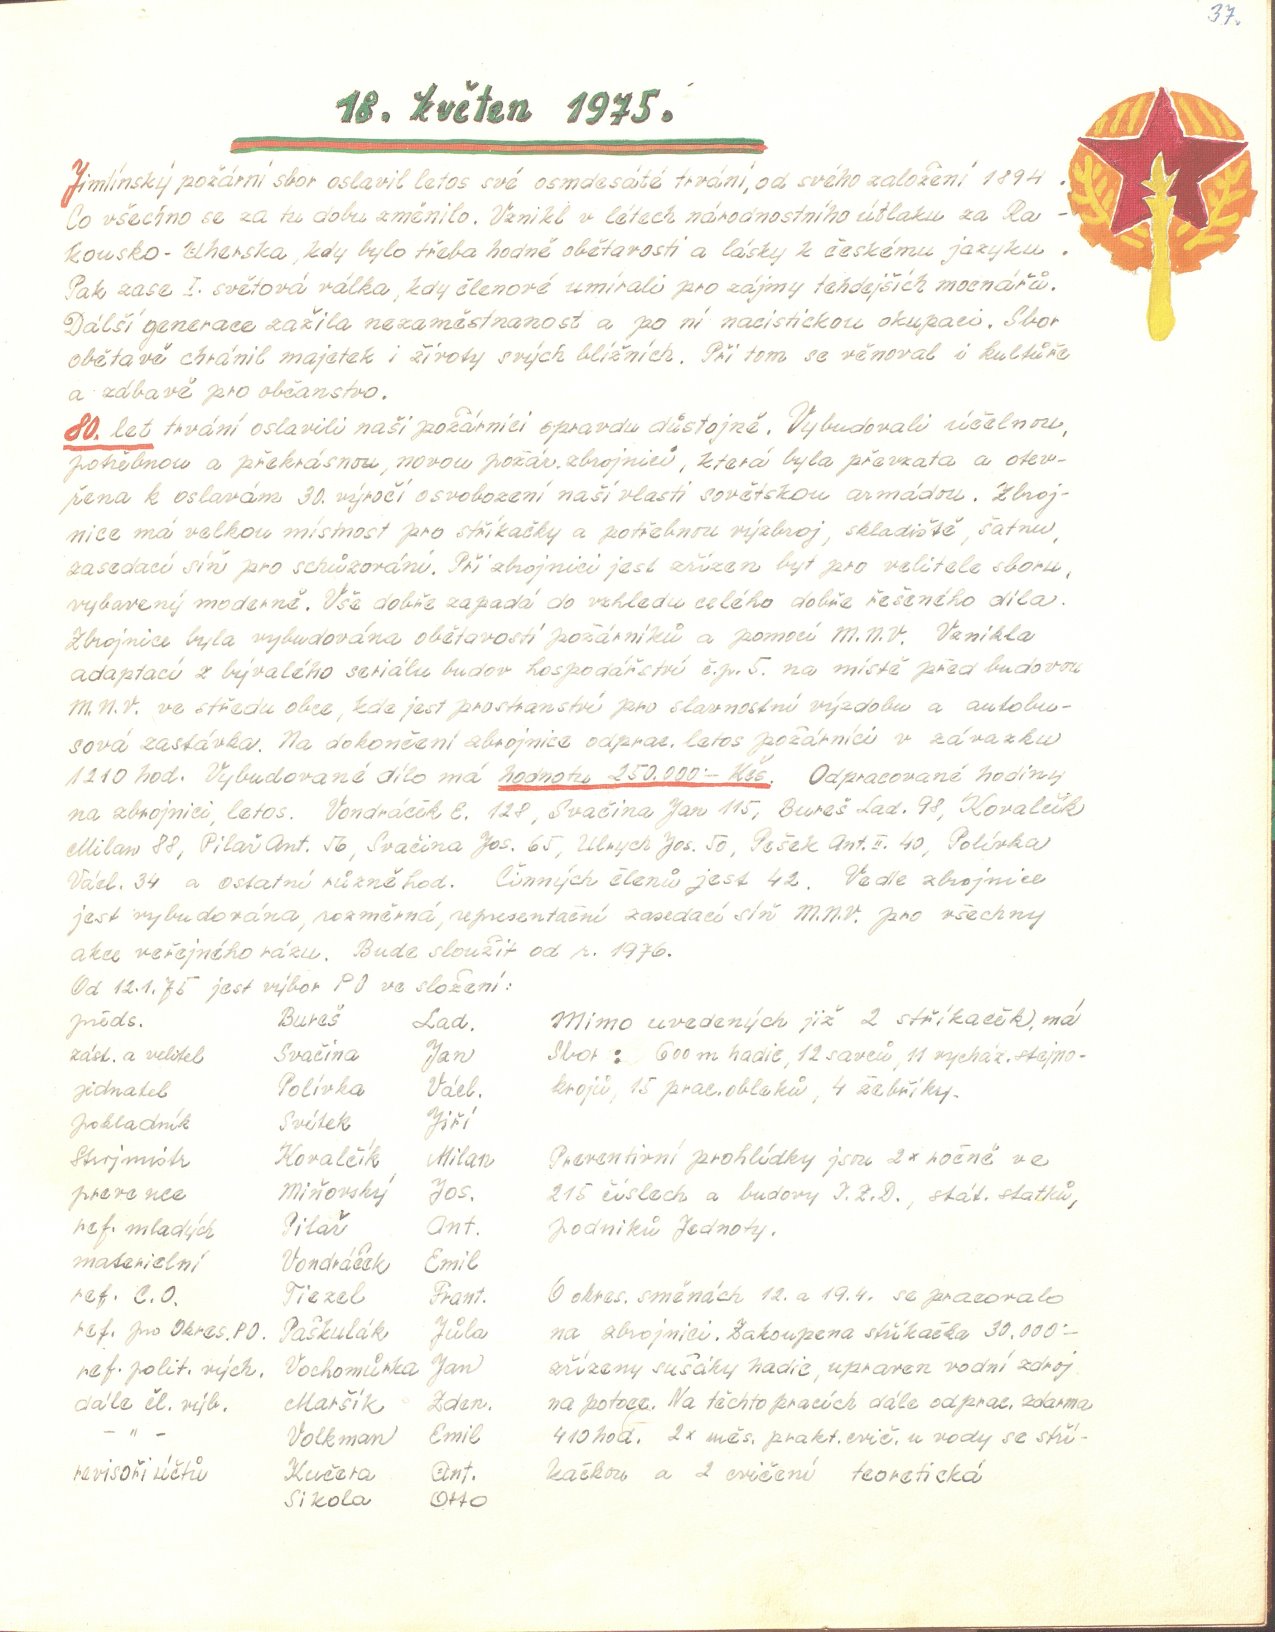 37.
18. květen 1975.
Jimlínský požární sbor oslavil letos své osmdesáté trvání, od svého založení 1894.
Co všechno se za tu dobu změnilo. Vznikl v létech národnostního útlaku za Ra-
kousko-Uherska, kdy bylo třeba hodně obětavosti a lásky k českému jazyku.
Pak zase I. světová válka, kdy členové umírali pro zájmy tehdejších mocnářů.
Další generace zažila nezaměstnanost a po ní nacistickou okupaci. Sbor
obětavě chránil majetek i životy svých bližních. Při tom se věnoval i kultuře
a zábavě pro občanstvo.
80. let trvání oslavili naši požárníci opravdu důstojně. Vybudovali účelnou,
potřebnou a překrásnou, novou požár. zbrojnici, která byla převzata a otev-
řena k oslavám 30. výročí osvobození naší vlasti sovětskou armádou. Zbroj-
nice má velkou místnost pro stříkačky a potřebnou výzbroj, skladiště, šatnu,
zasedací síň pro schůzování. Při zbrojnici jest zřízen byt pro velitele sboru,
vybavený moderně. Vše dobře zapadá do vzhledu celého dobře řešeného díla.
Zbrojnice byla vybudována obětavostí požárníků a pomocí M.N.V. Vznikla
adaptací z bývalého seriálu budov hospodářství č.p. 5. na místě před budovou
M.N.V. ve středu obce, kde jest prostranství pro slavnostní výzdobu a autobu-
sová zastávka. Na dokončení zbrojnice odprac. letos požárníci v závazku
1210 hod. Vybudované dílo má hodnotu 250.000.- Kčs. Odpracované hodiny
na zbrojnici, letos. Vondráček E. 128, Svačina Jan 115, Bureš Lad. 98, Kovalčík
Milan 88, Pilař Ant. 56, Svačina Jos. 65, Ulrych Jos. 50, Pešek Ant. II. 40, Polívka
Václ. 34 a ostatní různě hod. Činných členů jest 42. Vedle zbrojnice
jest vybudována, rozměrná, representační zasedací síň M.N.V. pro všechny
akce veřejného rázu. Bude sloužit od r. 1976.
Od 12.1.75 jest výbor PO ve složení:
předs. Bureš Lad.
zást. a velitel Svačina Jan
jednatel Polívka Václ.
pokladník Svítek Jiří
strojmistr Kovalčík Milan
prevence Miňovský Jos.
ref. mladých Pilař Ant.
materielní Vondráček Emil
ref. C.O. Tiezel Frant.
ref. pro Okres. PO. Paškulák Jůla
ref. polit. vých. Vochomůrka Jan
dále čl. výb. Maršík Zden.
- " - Volkman Emil
revisoři účtů Kučera Ant.
Sikola Otto
Mimo uvedených již 2 stříkaček, má
Sbor: 600 m hadic, 12 savců, 11 vycház. stejno-
krojů, 15 prac. obleků, 4 žebříky.
Preventivní prohlídky jsou 2x ročně ve
215 číslech a budovy J.Z.D., stát. statků,
podniků Jednoty.
O okres. směnách 12. a 19.4. se pracovalo
na zbrojnici. Zakoupena stříkačka 30.000.-
zřízeny sušáky hadic, upraven vodní zdroj
na potoce. Na těchto pracích dále odprac. zdarma
410 hod. 2x měs. prakt. cvič. u vody se stří-
kačkou a 2 cvičení teoretická